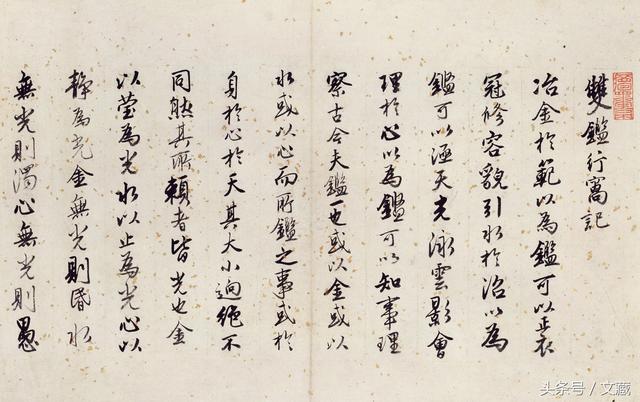 雙鑑行窩記
冶金於範以為鑑可以正衣
冠修容貌引水於沼以為
鑑可以涵天光泳雲影會
理於心以為鑑可以知事理
察古今夫鑑一也或以金或以
水或以心而所鑑之事或於
身於心於天其大小迥絕不
同然其所賴者皆光也金
以莹為光水以止為光心以
静為光金無光則昏水
無光則濁心無光則愚
头条号 / 文藏